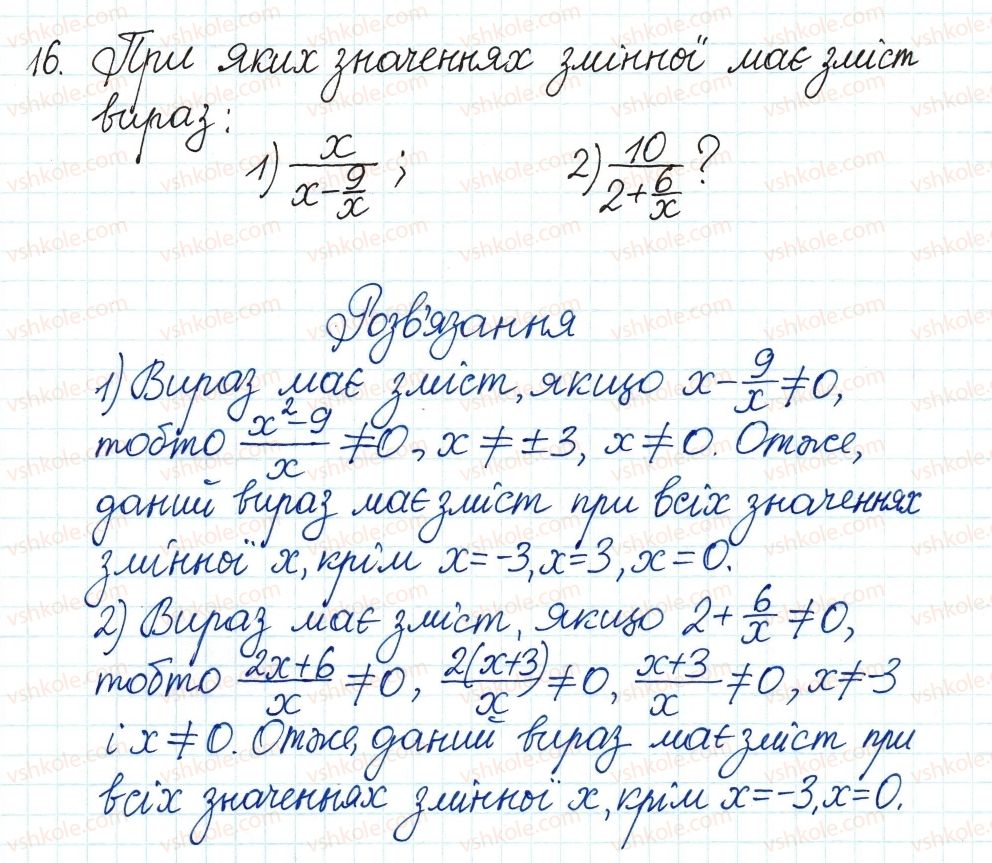 16. При яких значеннях змінної має зміст
вираз:
1) x/(x - 9/x); 2) 10/(2 + 6/x)?
Розв'язання
1) Вираз має зміст, якщо x - 9/x ≠ 0,
тобто (x² - 9)/x ≠ 0, x ≠ ±3, x ≠ 0. Отже,
даний вираз має зміст при всіх значеннях
змінної x, крім x = -3, x = 3, x = 0.
2) Вираз має зміст, якщо 2 + 6/x ≠ 0,
тобто (2x + 6)/x ≠ 0, 2(x + 3)/x ≠ 0, (x + 3)/x ≠ 0, x ≠ -3
і x ≠ 0. Отже, даний вираз має зміст при
всіх значеннях змінної x, крім x = -3, x = 0.
vshkole.com